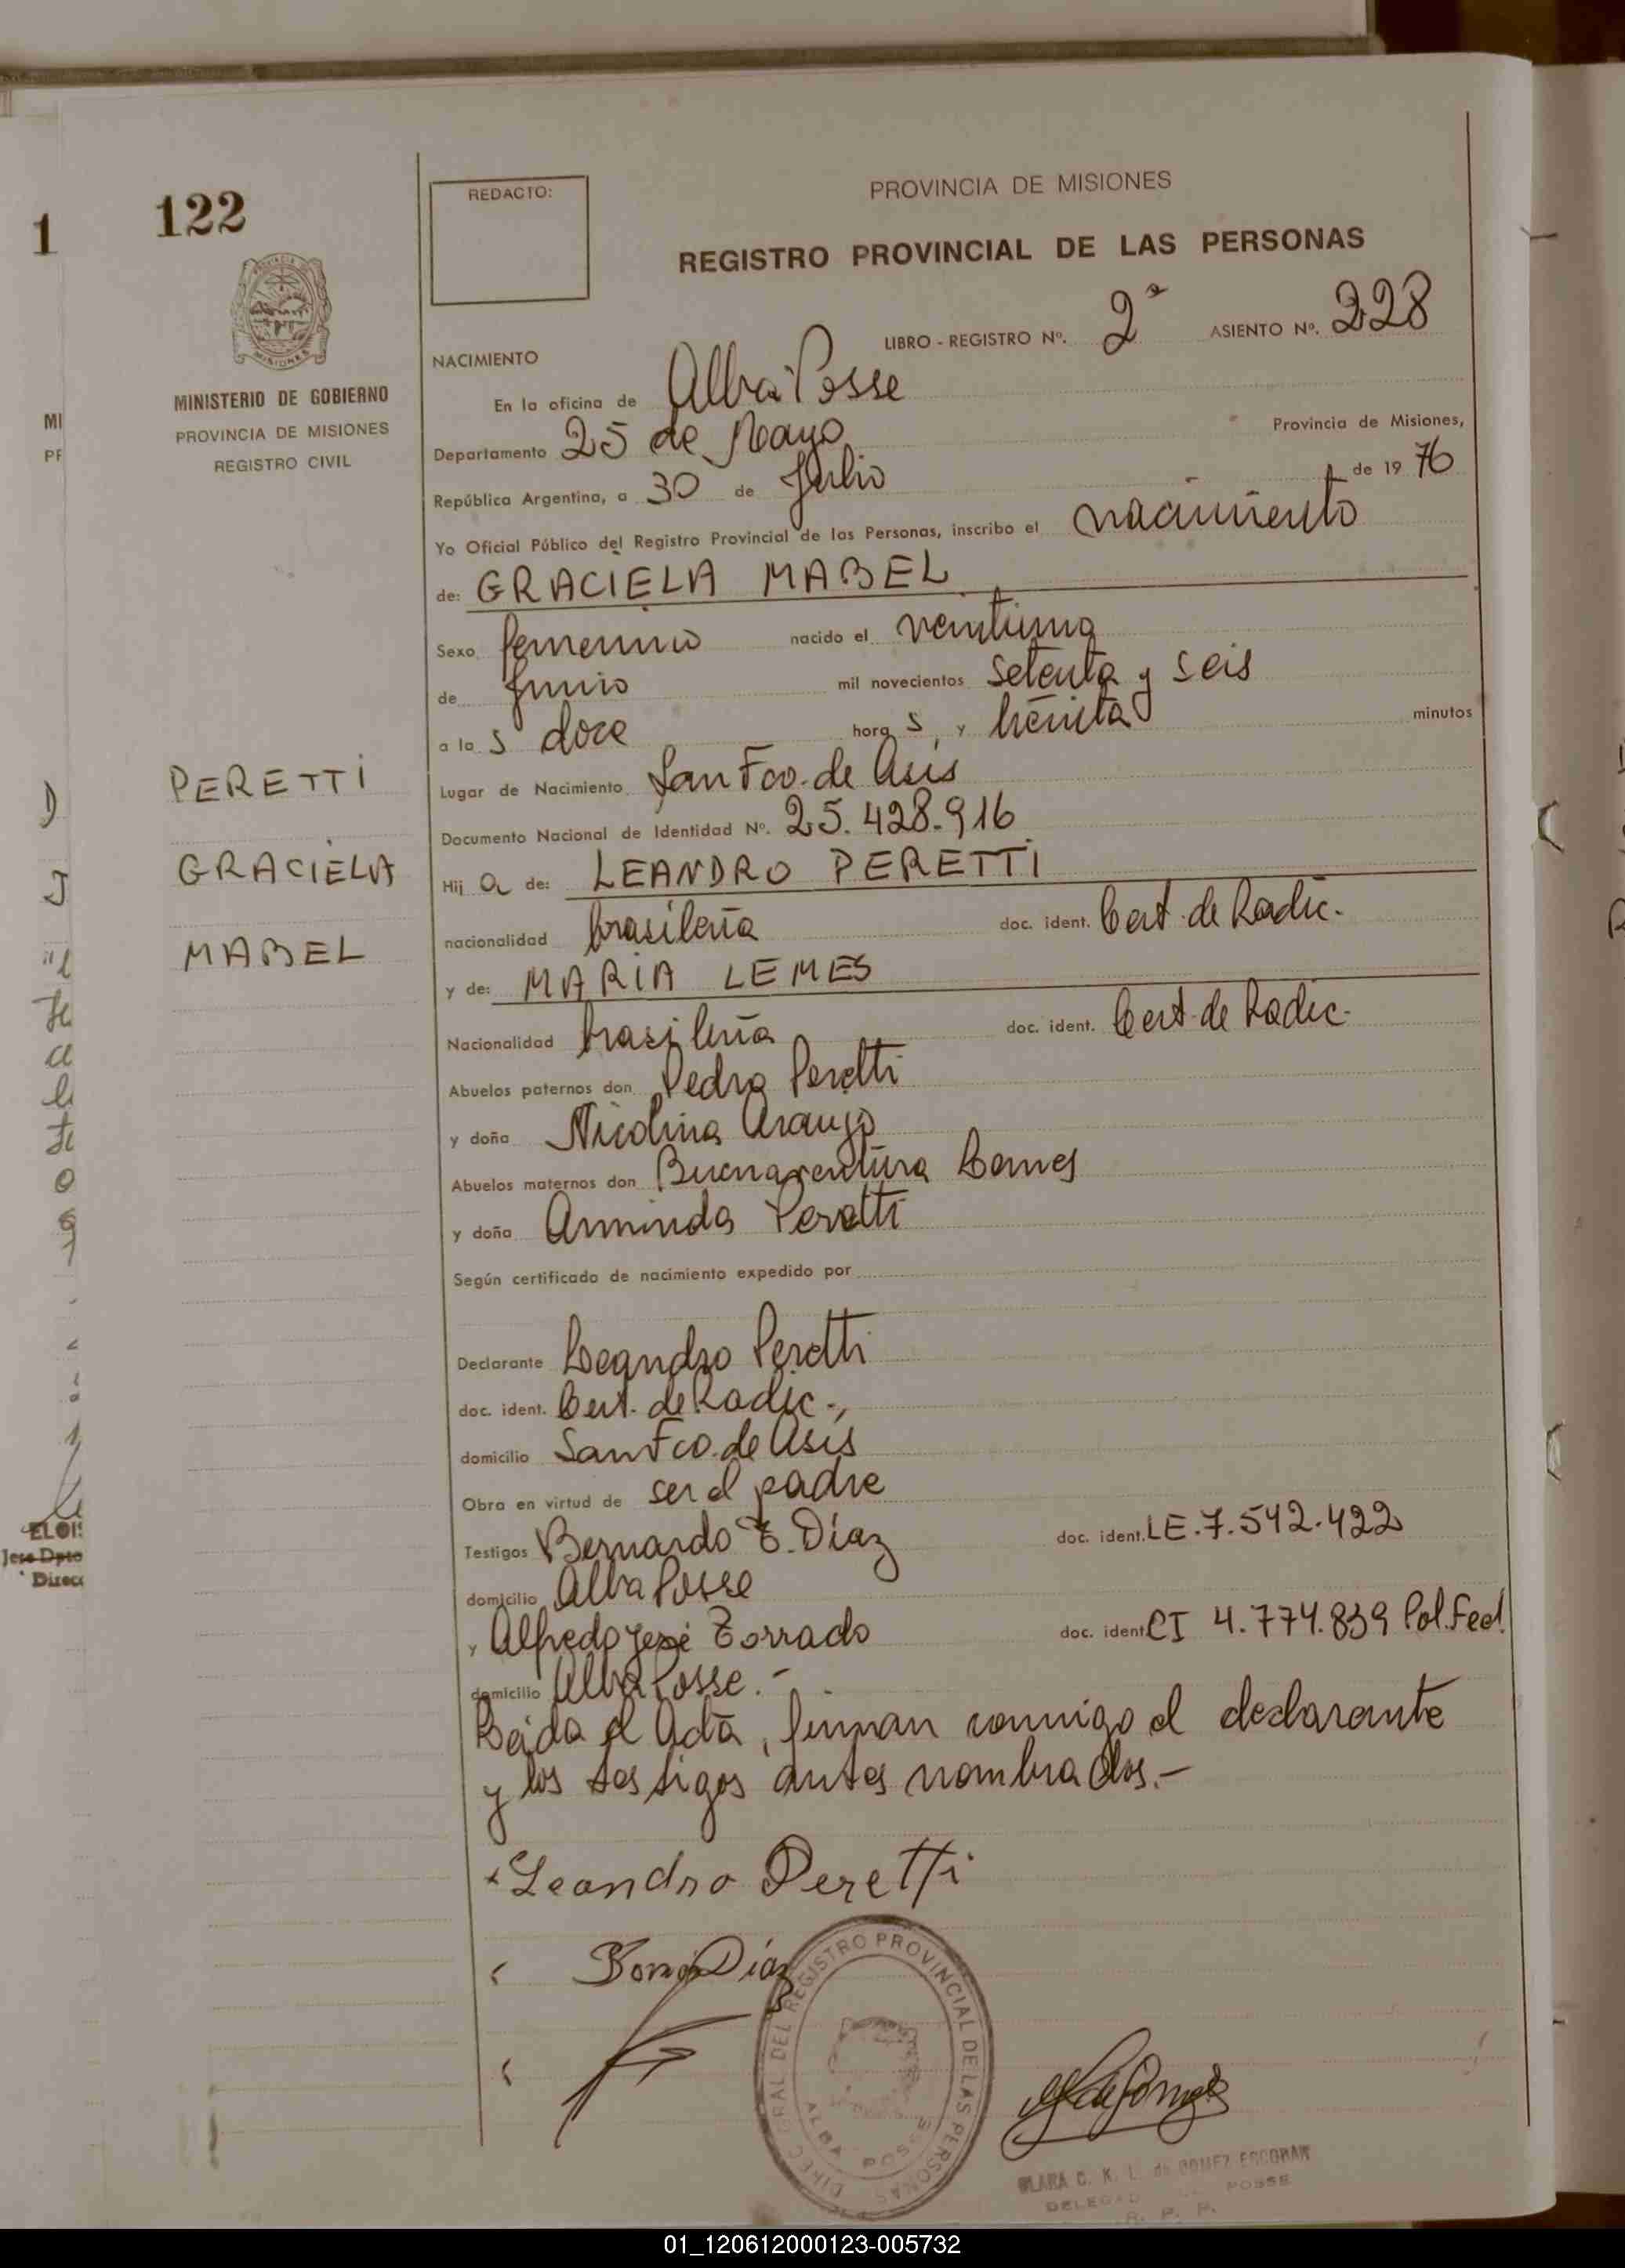 122
1
REDACTO:
PROVINCIA DE MISIONES
REGISTRO PROVINCIAL DE LAS PERSONAS
LIBRO - REGISTRO Nº. 2ª ASIENTO Nº. 228
MINISTERIO DE GOBIERNO
PROVINCIA DE MISIONES
REGISTRO CIVIL
NACIMIENTO
En la oficina de Alba Posse
Departamento 25 de Mayo Provincia de Misiones,
República Argentina, a 30 de Julio de 1976
Yo Oficial Público del Registro Provincial de las Personas, inscribo el nacimiento
de: GRACIELA MABEL
Sexo femenino nacido el veintiuno
de Junio mil novecientos setenta y seis
a las doce horas, y treinta minutos
PERETTI
Lugar de Nacimiento San Fco. de Asis
Documento Nacional de Identidad Nº. 25.428.916
GRACIELA
Hija de: LEANDRO PERETTI
nacionalidad brasileña doc. ident. Cert. de Radic.
MABEL
y de: MARIA LEMES
Nacionalidad brasileña doc. ident. Cert. de Radic.
Abuelos paternos don Pedro Peretti
y doña Nicolina Araujo
Abuelos maternos don Buenaventura Lemes
y doña Arminda Peretti
Según certificado de nacimiento expedido por
Declarante Leandro Peretti
doc. ident. Cert. de Radic.-,
domicilio San Fco. de Asis
Obra en virtud de ser el padre
Testigos Bernardo T. Díaz doc. ident. LE.7.542.422
domicilio Alba Posse
y Alfredo José Torrado doc. ident CI 4.774.839 Pol. Fed.
domicilio Alba Posse.-
Leida el Acta, firman conmigo el declarante
y los testigos antes nombrados.-
Leandro Peretti
Díaz
DIREC. GRAL DEL REGISTRO PROVINCIAL DE LAS PERSONAS
ALBA POSSE
CLARA C. K. L. de GOMEZ ESCOBAR
POSSE
R. P. P.
01_120612000123-005732